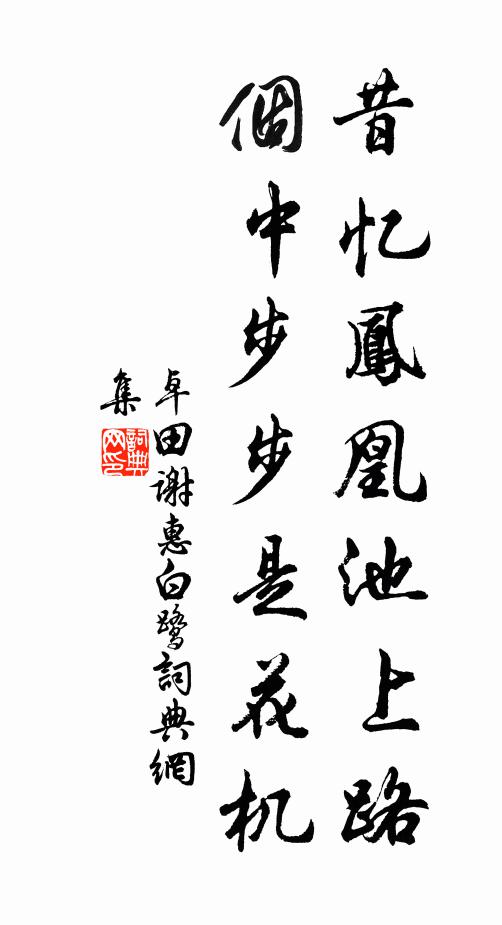 昔忆鳳凰池上路
個中步步是花机
卓田谢惠白鹭詞典網
集
詞典网印